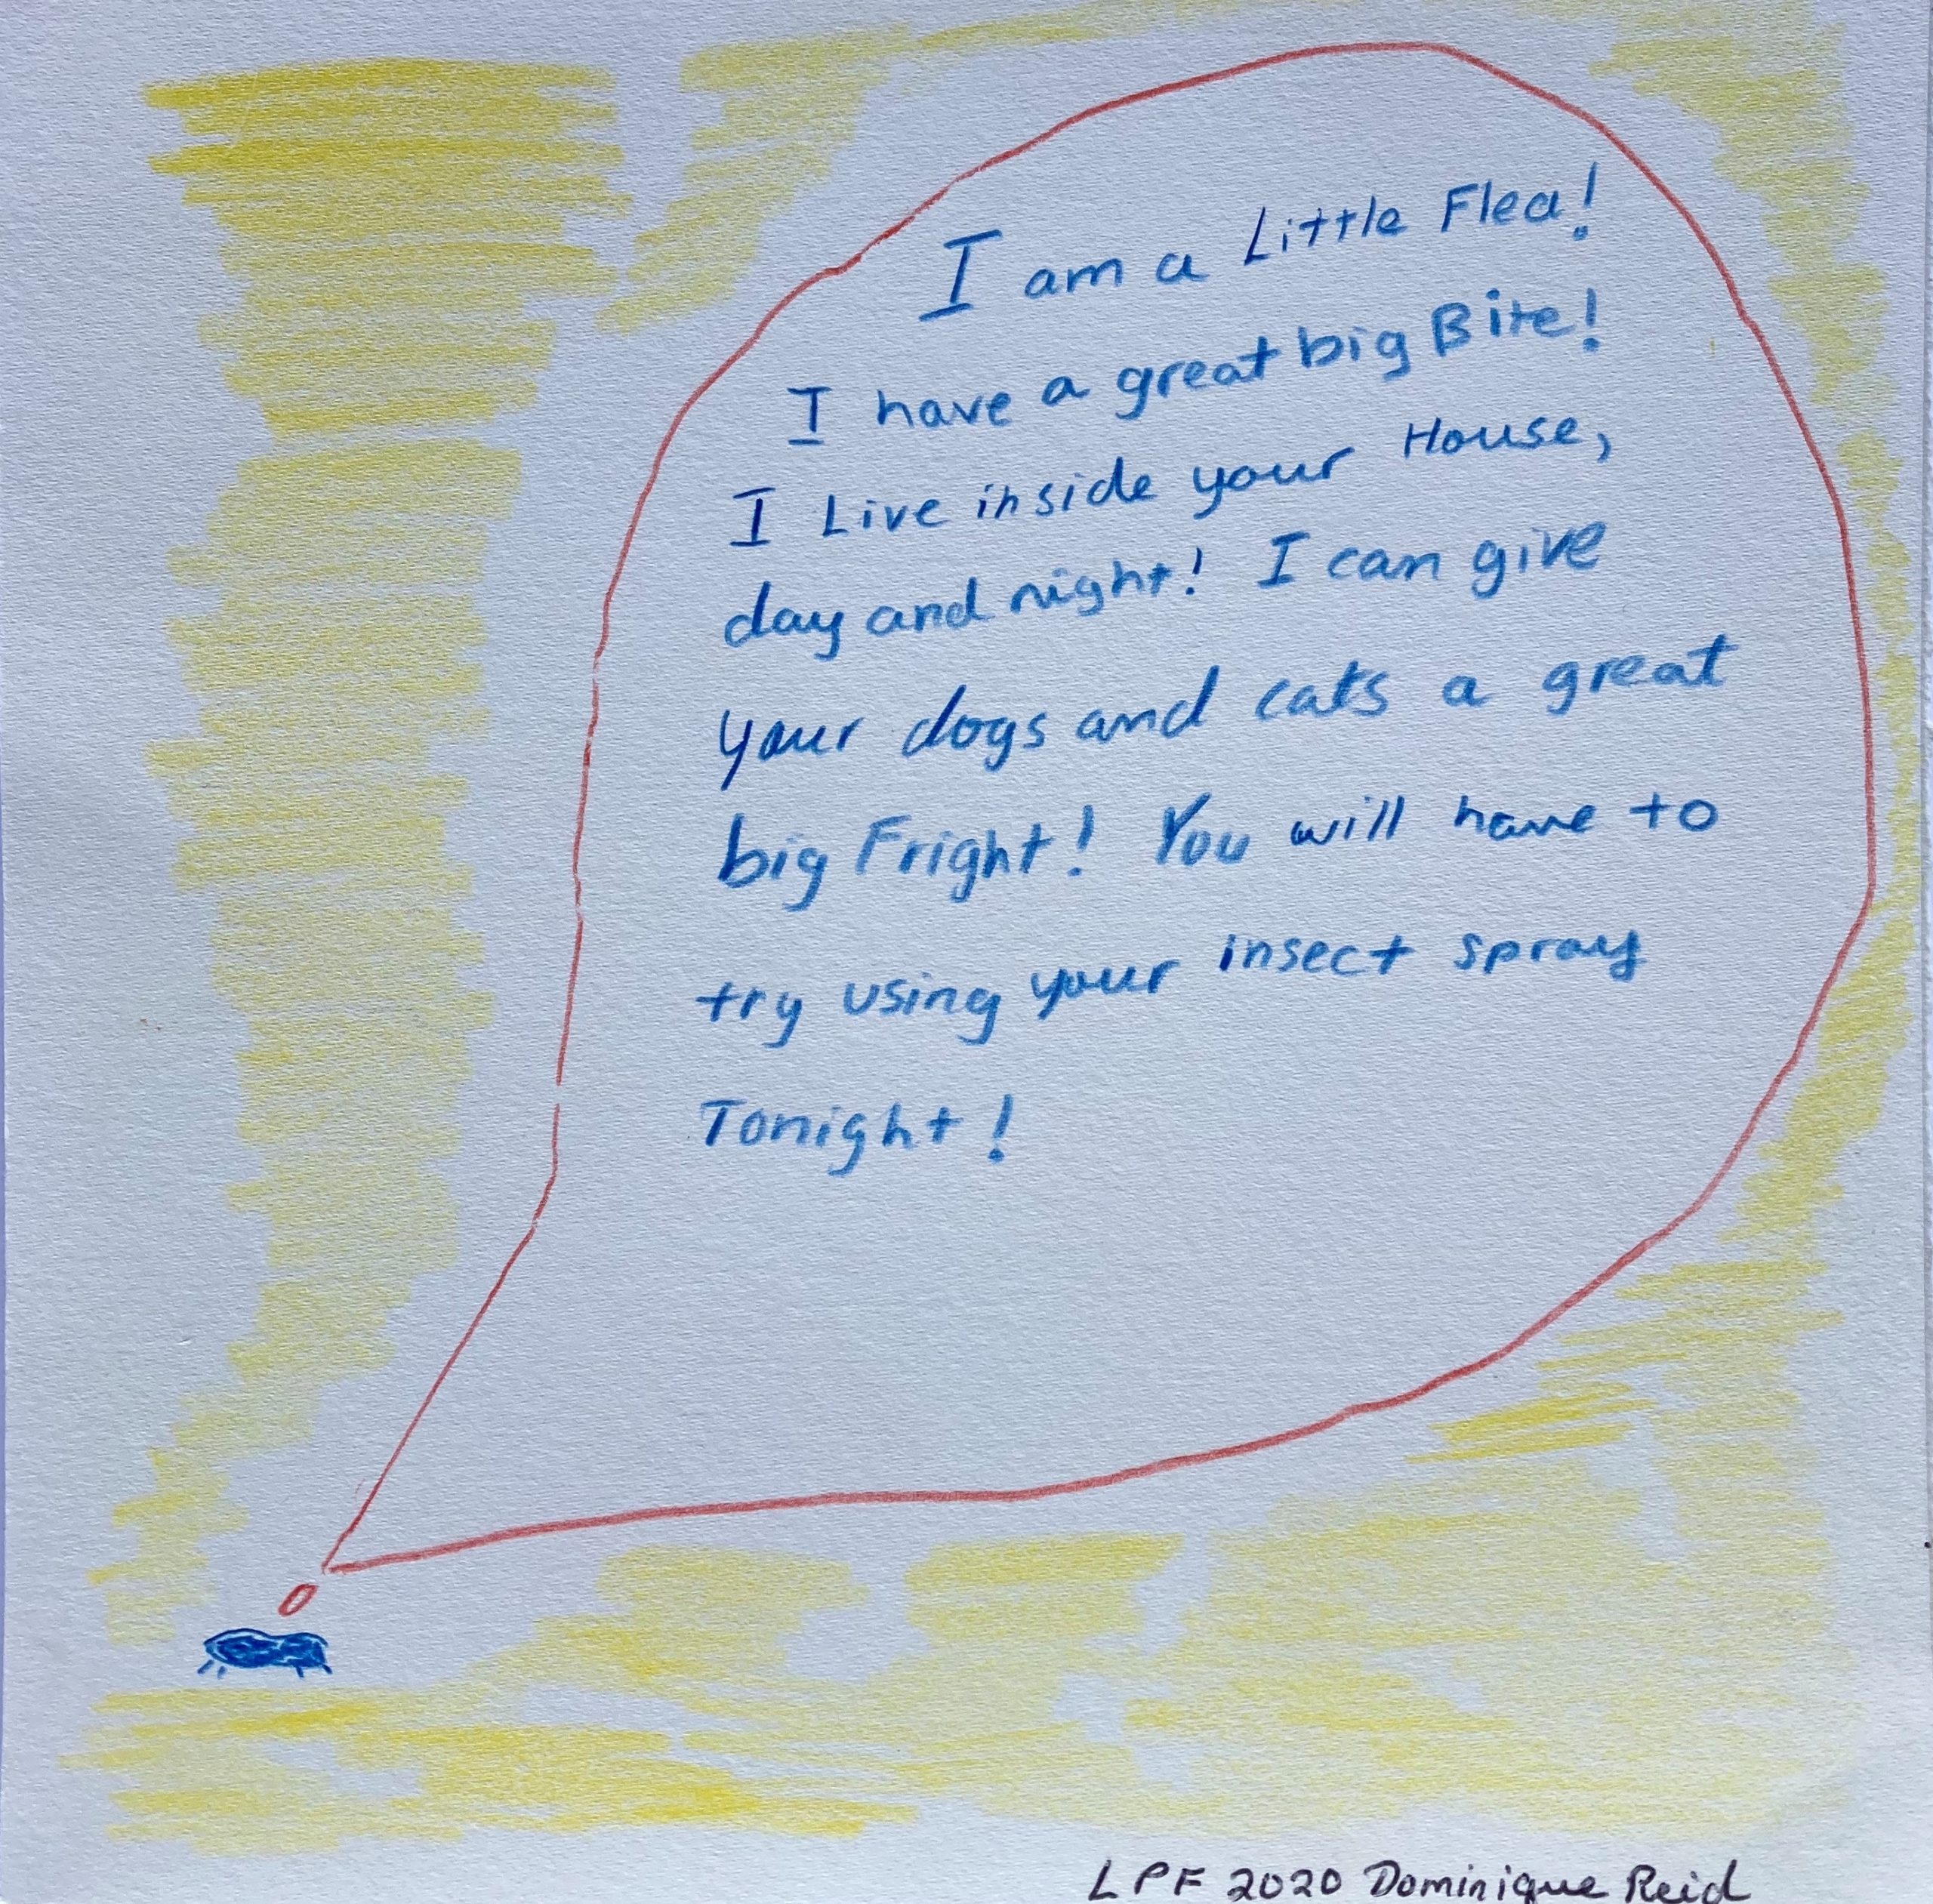 I am a Little Flea!
I have a great big Bite!
I Live inside your House,
day and night! I can give
your dogs and cats a great
big Fright! You will have to
try using your insect spray
Tonight!
LPF 2020 Dominique Reid